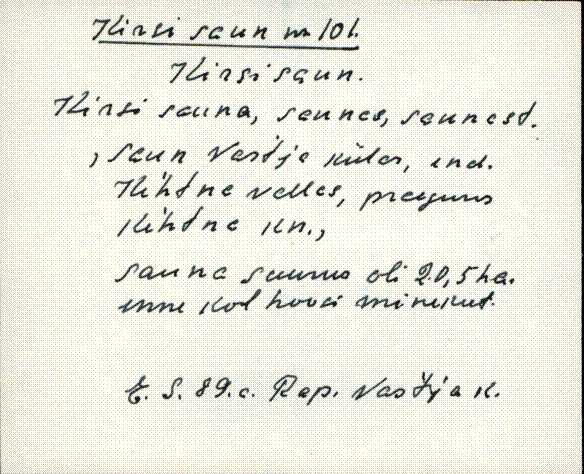 Kirsi saun nr 101.
Kirsi saun.
Kirsi sauna, saunas, saunast.
, saun Vastja külas, end.
Kihtna vallas, praegune
Kihtna kn.,
sauna suurus oli 20,5 ha.
enne kolhoosi minekut.
E. S. 89. a. Rap. Vastja k.